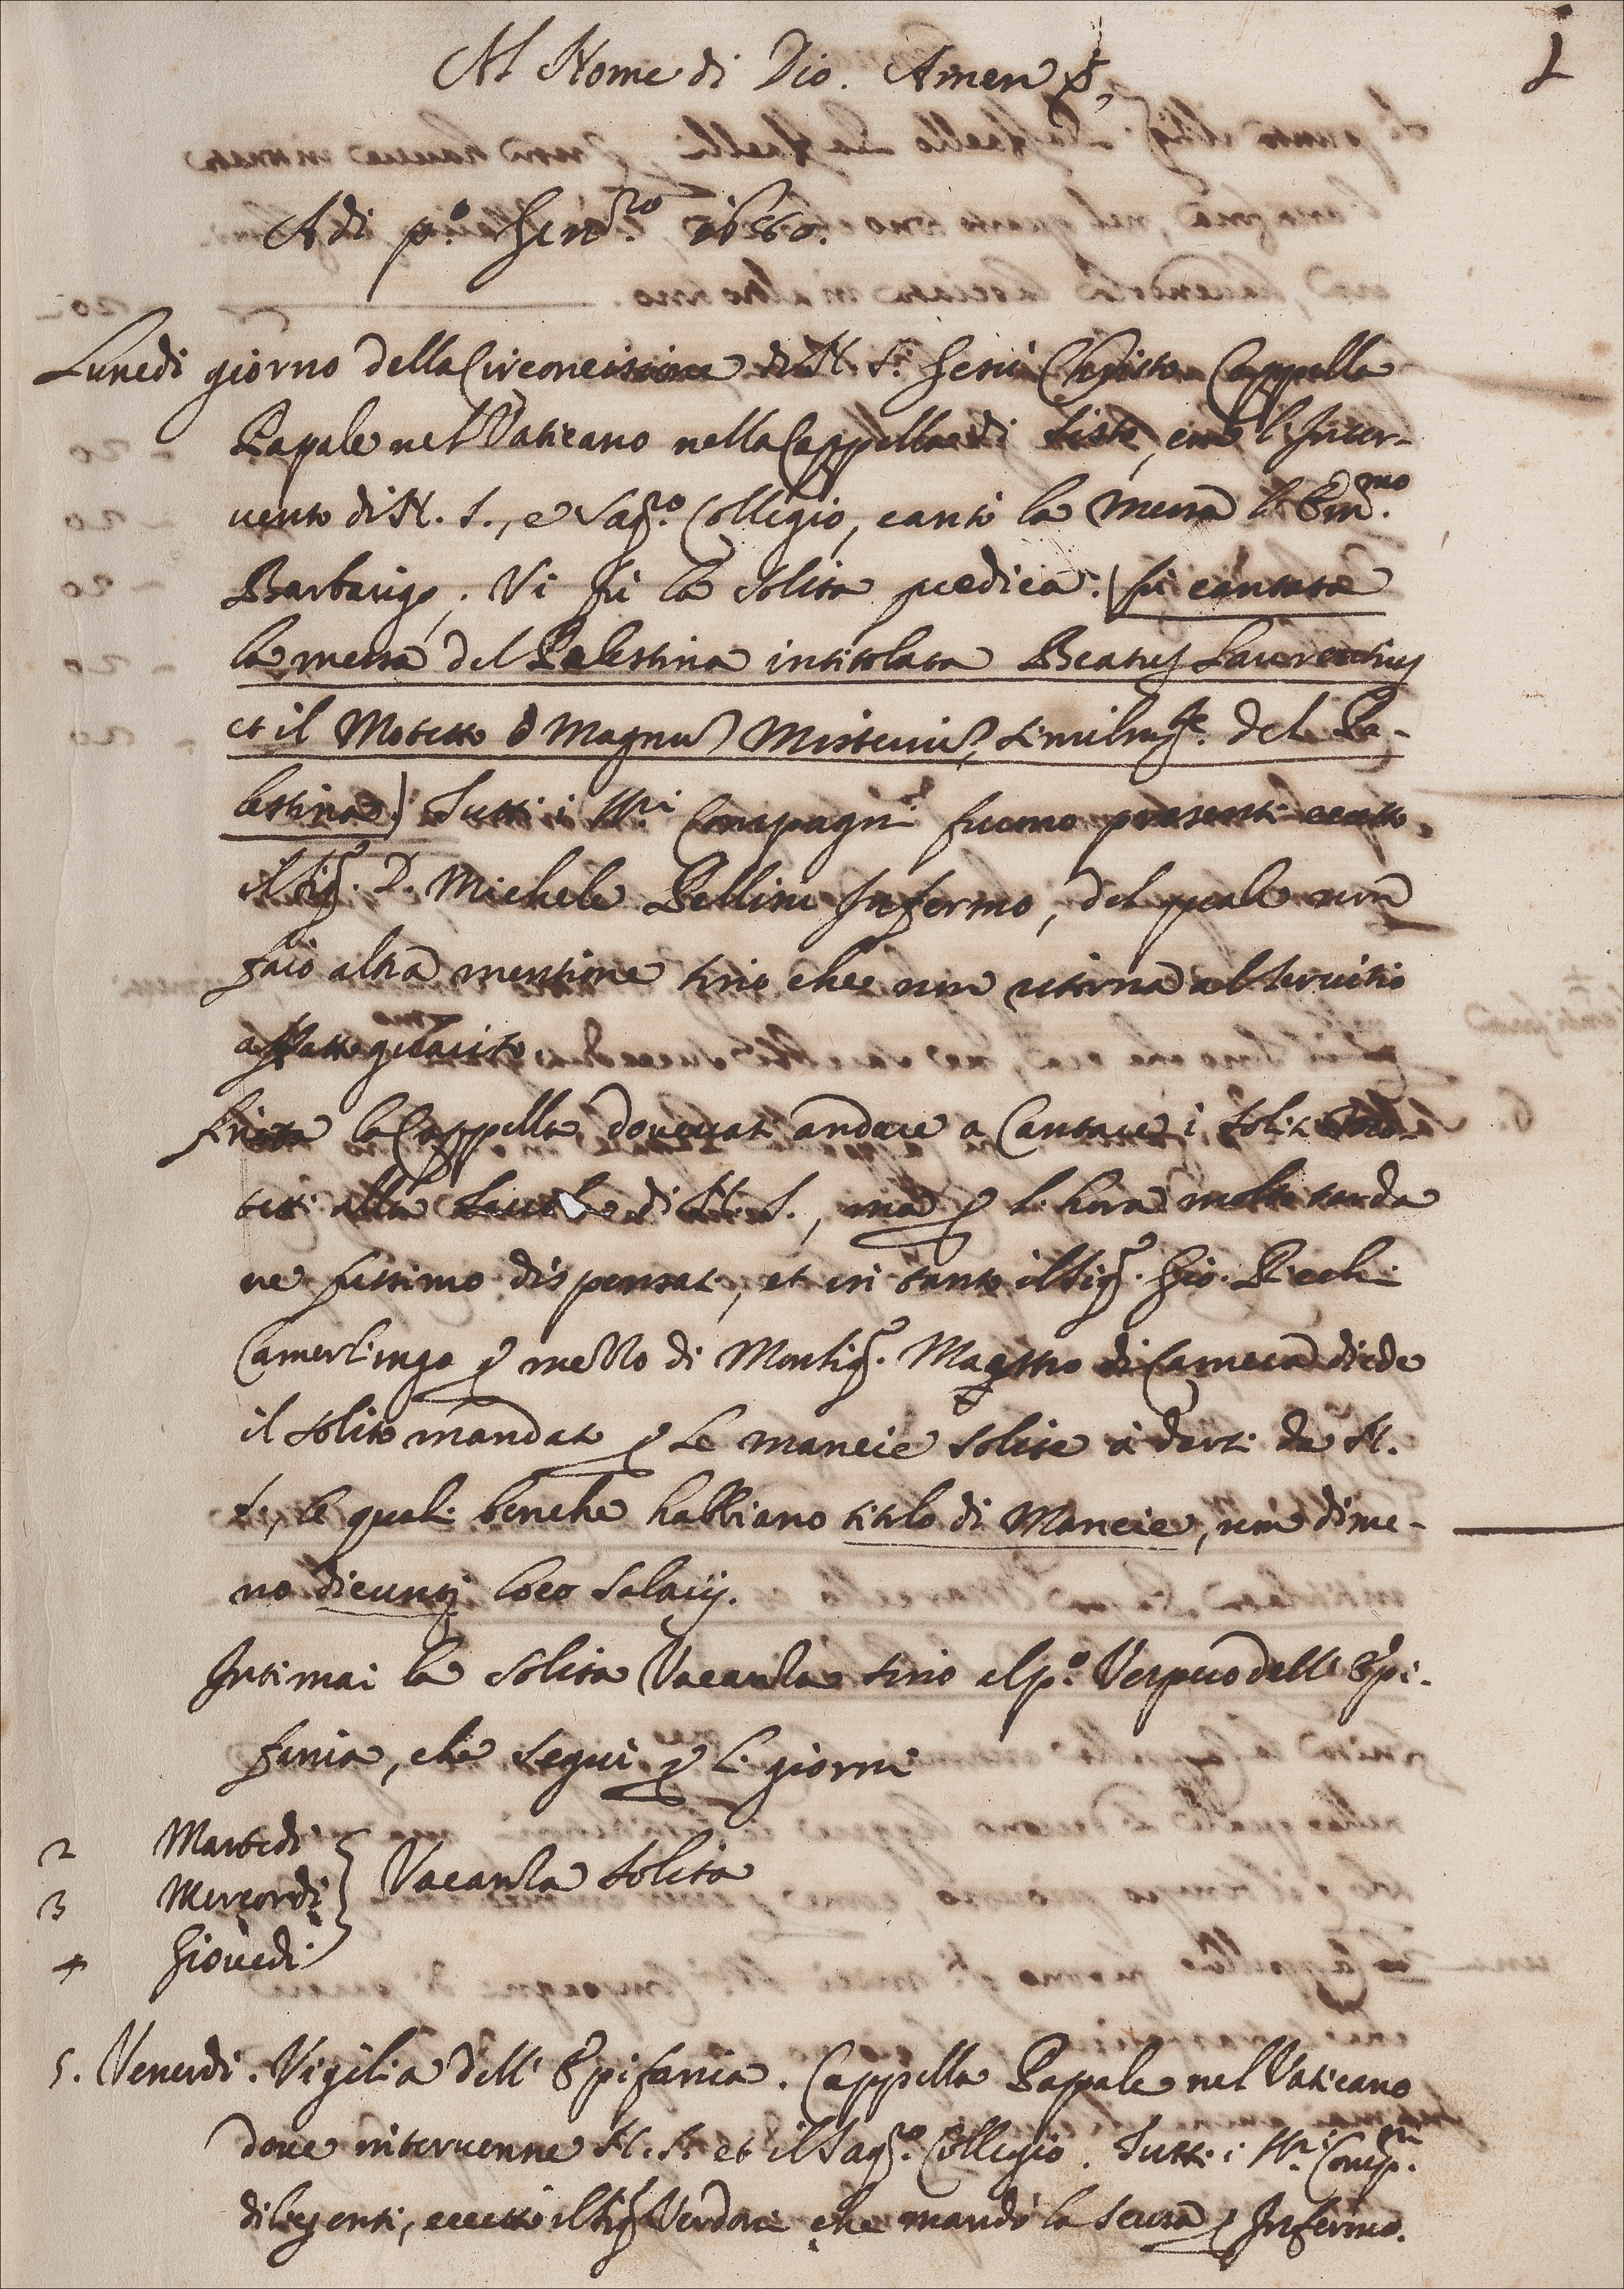 Al Nome di Dio. Amen
1
Adi p.o Genro. 1680.
Lunedi giorno della Circoncisione di N. S. Gesù Christo Cappella
Papale nel Vaticano nella Cappella di Sisto, con l'Inter-
vento di N. S., e Sagro. Collegio, cantò la Messa l'Emmo.
Barbarigo. Vi fù la solita predica. (fù cantata
la messa del Palestina intitolata Beatus Laurentius
et il Motetto O Magnũ Misteriũ, similmte. del Pa-
lestina) Tutti i SSri Compagni furno presenti eccetto
il Sigr. D. Michele Pellini Infermo, del quale non
farò altra mentione sino che non ritorna al servitio
affatto guarito.
Finita la Cappella, dovevati andare a Cantare i soliti Mo-
tetti alla di N. S., ma p l'hora molto tarda
ne fussimo dispensati, et in tanto il Sigr. Gio. Pecchi
Camerlingo p mezzo di Monsigr. Maestro di Camera diede
il solito mandato p le mancie solite à darsi da N.
S., le quali benche habbiano titolo di Mancie, non dime-
no dicunt loco salarij.
Intimai la solita Vacanza sino al p.o Vespero dell' Epi-
fania, che seguì p li giorni
2 Martedi
3 Mercordi } Vacanza solita
4 Giovedi
5. Venerdi. Vigilia dell' Epifania. Cappella Pappale nel Vaticano
dove intervenne N. S. et il Sagro. Collegio. Tutti i SSri Compni.
diligenti, eccetto il Sigr Verdoni che mandò la scusa p Infermo.